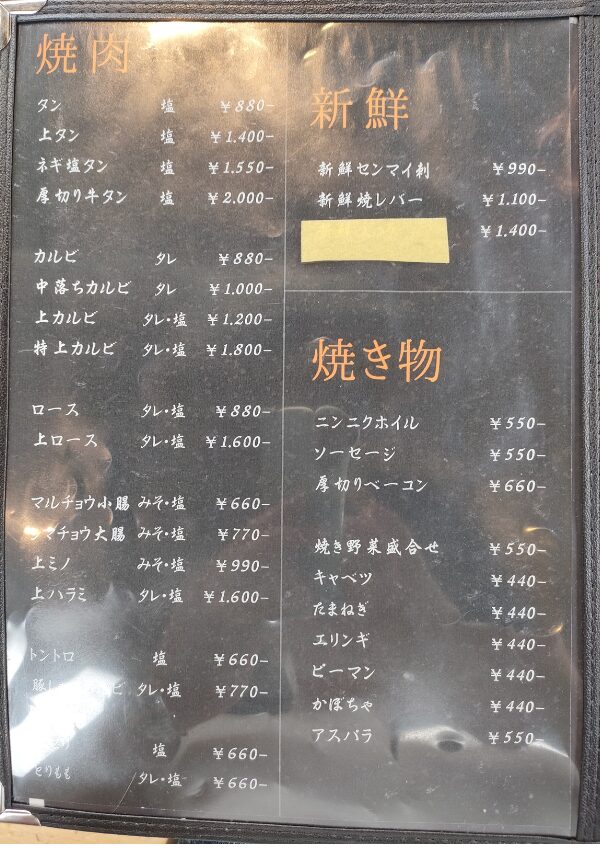 焼肉
タン 塩 ¥880-
上タン 塩 ¥1.400-
ネギ塩タン 塩 ¥1.550-
厚切り牛タン 塩 ¥2.000-
カルビ タレ ¥880-
中落ちカルビ タレ ¥1.000-
上カルビ タレ・塩 ¥1.200-
特上カルビ タレ・塩 ¥1.800-
ロース タレ・塩 ¥880-
上ロース タレ・塩 ¥1.600-
マルチョウ小腸 みそ・塩 ¥660-
シマチョウ大腸 みそ・塩 ¥770-
上ミノ みそ・塩 ¥990-
上ハラミ タレ・塩 ¥1.600-
トントロ 塩 ¥660-
豚 ビ タレ・塩 ¥770-
塩 ¥660-
とりもも タレ・塩 ¥660-
新鮮
新鮮センマイ刺 ¥990-
新鮮焼レバー ¥1.100-
¥1.400-
焼き物
ニンニクホイル ¥550-
ソーセージ ¥550-
厚切りベーコン ¥660-
焼き野菜盛合せ ¥550-
キャベツ ¥440-
たまねぎ ¥440-
エリンギ ¥440-
ピーマン ¥440-
かぼちゃ ¥440-
アスパラ ¥550-